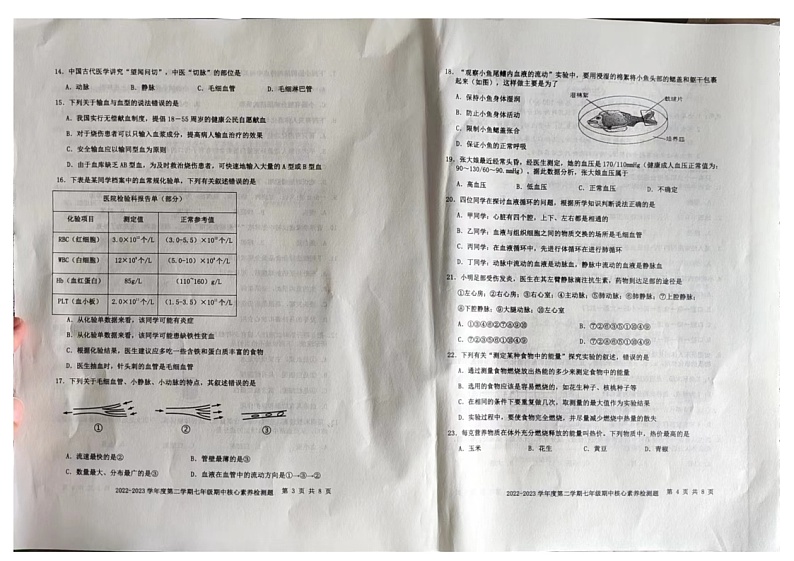 14. 中国古代医学讲究“望闻问切”，中医“切脉”的部位是
A. 动脉 B. 静脉 C. 毛细血管 D. 毛细淋巴管
15. 下列关于输血与血型的说法错误的是
A. 我国实行无偿献血制度，提倡 18－55 周岁的健康公民自愿献血
B. 对于烧伤患者可以只输入血浆成分，提高病人输血治疗的效果
C. 安全输血应以输同型血为原则
D. 由于血库缺乏 AB型血，为及时救治烧伤患者，可快速地输入大量的 A 型或 B型血
16. 下表是某同学档案中的血常规化验单，下列有关叙述错误的是
医院检验科报告单（部分）
化验项目 测定值 正常参考值
RBC（红细胞）
WBC（白细胞）
Hb（血红蛋白） 85g/L （110~160）g/L
PLT（血小板）
A. 从化验单数据来看，该同学可能有炎症
B. 从化验单数据来看，该同学可能患缺铁性贫血
C. 根据化验结果，医生建议应多吃一些含铁和蛋白质丰富的食物
D. 医生抽血时，针头刺的血管是毛细血管
17. 下列关于毛细血管、小静脉、小动脉的特点，其叙述错误的是
① ② ③
A. 流速最快的是② B. 管壁最薄的是③
C. 数量最大、分布最广的是③ D. 血液在血管中的流动方向是①→③→②
2022-2023 学年度第二学期七年级期中核心素养检测题 第 3 页 共 8 页
18. “观察小鱼尾鳍内血液的流动”实验中，要用浸湿的棉絮将小鱼头部的鳃盖和躯干包裹
起来（如图），这样做主要是为了
A. 保持小鱼身体湿润
B. 防止小鱼身体活动
C. 限制小鱼鳃盖张合
D. 保证小鱼的正常呼吸
湿棉絮
载玻片
培养皿
19. 张大娘最近经常头昏，经医生测定，她的血压是 170/110mmHg（健康成人血压正常值为：
90~130/60~90.mmHg），据此数据分析，张大娘血压属于
A. 高血压 B. 低血压 C. 正常血压 D. 不确定
20. 四位同学在探讨血液循环的问题，根据所学知识判断说法正确的是
A. 甲同学：心脏有四个腔，上下、左右都是相通的
B. 乙同学：血液与组织细胞之间的物质交换的场所是毛细血管
C. 丙同学：在血液循环中，先进行体循环在进行肺循环
D. 丁同学：动脉中流动的血液是动脉血，静脉中流动的血液是静脉血
21. 小明足部受伤发炎，医生在其左臂静脉滴注抗生素，药物到达足部的途径是
①左心房；②右心房；③右心室；④主动脉；⑤肺动脉；⑥肺静脉；⑦上腔静脉；
⑧下腔静脉；⑨大腿动脉；⑩左心室
A. B.
C. D.
22. 下列有关“测定某种食物中的能量”探究实验的叙述，错误的是
A. 通过测量食物燃烧放出热能的多少来测定食物中的能量
B. 选用的食物应该是容易燃烧的，如花生种子、核桃种子等
C. 在相同的条件下要重复做几次，取测量的最大值作为实验结果
D. 实验过程中，要使食物完全燃烧，并尽量减少燃烧中热量的散失
23. 每克营养物质在体外充分燃烧释放的能量叫热价。下列物质中，热价最高的是
A. 玉米 B. 花生 C. 黄豆 D. 青椒
2022-2023 学年度第二学期七年级期中核心素养检测题 第 4 页 共 8 页